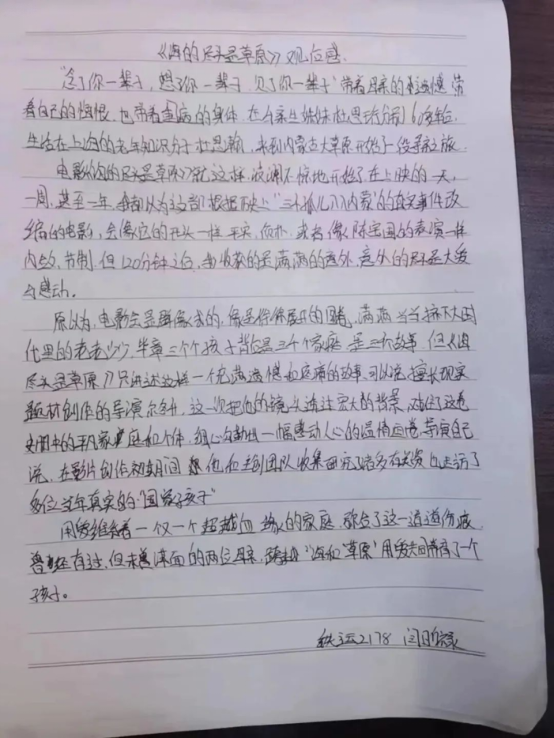 《海的尽头是草原》观后感
"念了你一辈子,想了你一辈子,见了你一辈子"带着母亲的遗憾,带
着自己的悔恨,也带着重病的身体,在与亲生妹妹杜思珩分别60多年后,
生活在上海的老年知识分子杜思瀚,来到内蒙古大草原开始了一段寻亲之旅
电影《海的尽头是草原》就这样波澜不惊地开始了在上映的一天,
一周,甚至一年,我都以为这部根据历史上"三千孤儿入内蒙"的真实事件改
编的电影,会像它的开头一样平实,质朴,或者像陈宝国的表演一样
内敛,节制,但120分钟之后,我收获的是满满的意外,意外的尽头是大爱
与感动。
原以为,电影会是群像式的,像是徐徐展开的图卷,满满当当摊下大时
代里的老老少少,毕竟三千个孩子背后是三千个家庭,是三千故事,但《海
尽头是草原》只讲述这样一个充满遗憾和疼痛的故事,可以说,擅长现实
题材创作的导演尔冬升,这一次把他的镜头绕过宏大的背景,对准了这卷
史册中的平凡家庭和个体,细心勾勒出一幅感动人心的温情画卷,导演自己
说,在影片创作初期间 他和主创团队收集研究了诸多有关资 也走访了
多位当年真实的"国家孩子"
用爱维系着一个又一个超越血 的家庭,弥合了这一道道伤痕
曾 还有过,但未曾谋面的两位母亲,跨越 "海和"草原"用爱共同养育了一个
孩子。
铁运2178 闫